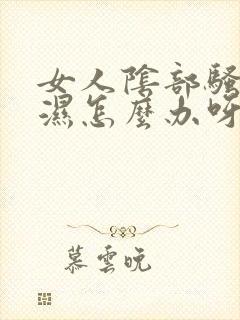 女人陰部騷
濕怎麼办呀
慕雲晚